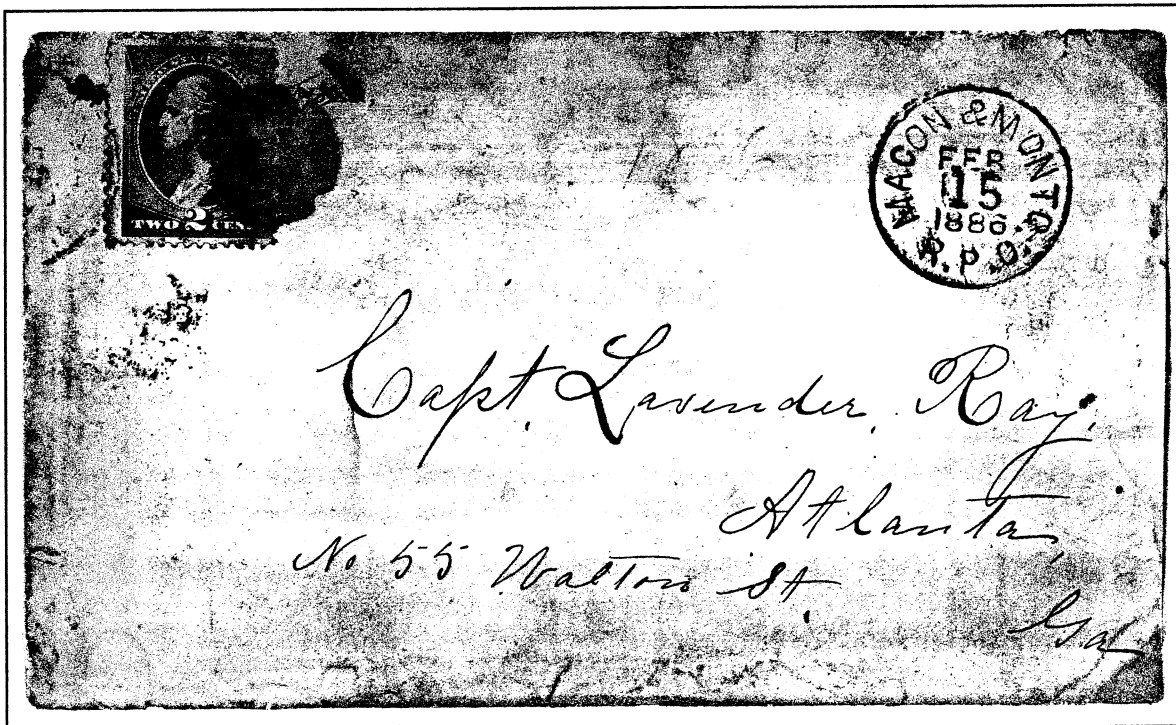 TWO 2 CEN
MACON & MONTG.
FEB
15
1886.
R.P.O.
Capt. Lavender Ray,
Atlanta,
No 55 Walton St.
Ga